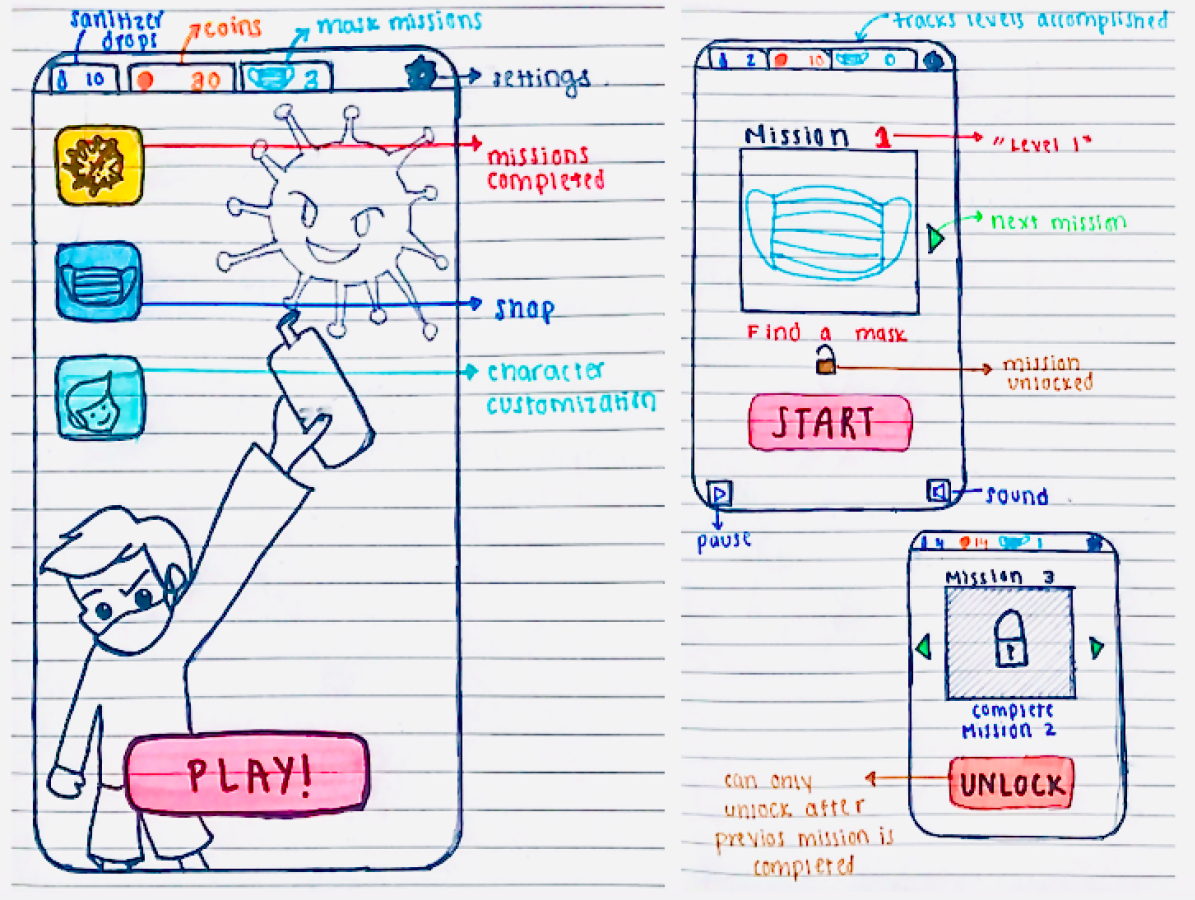 sanitizer
drops
coins
mask missions
10
30
3
settings
missions
completed
shop
character
customization
PLAY!
tracks levels accomplished
2
10
0
Mission 1
"Level 1"
next mission
Find a mask
mission
unlocked
START
sound
pause
4
14
1
Mission 3
complete
Mission 2
UNLOCK
can only
unlock after
previos mission is
completed